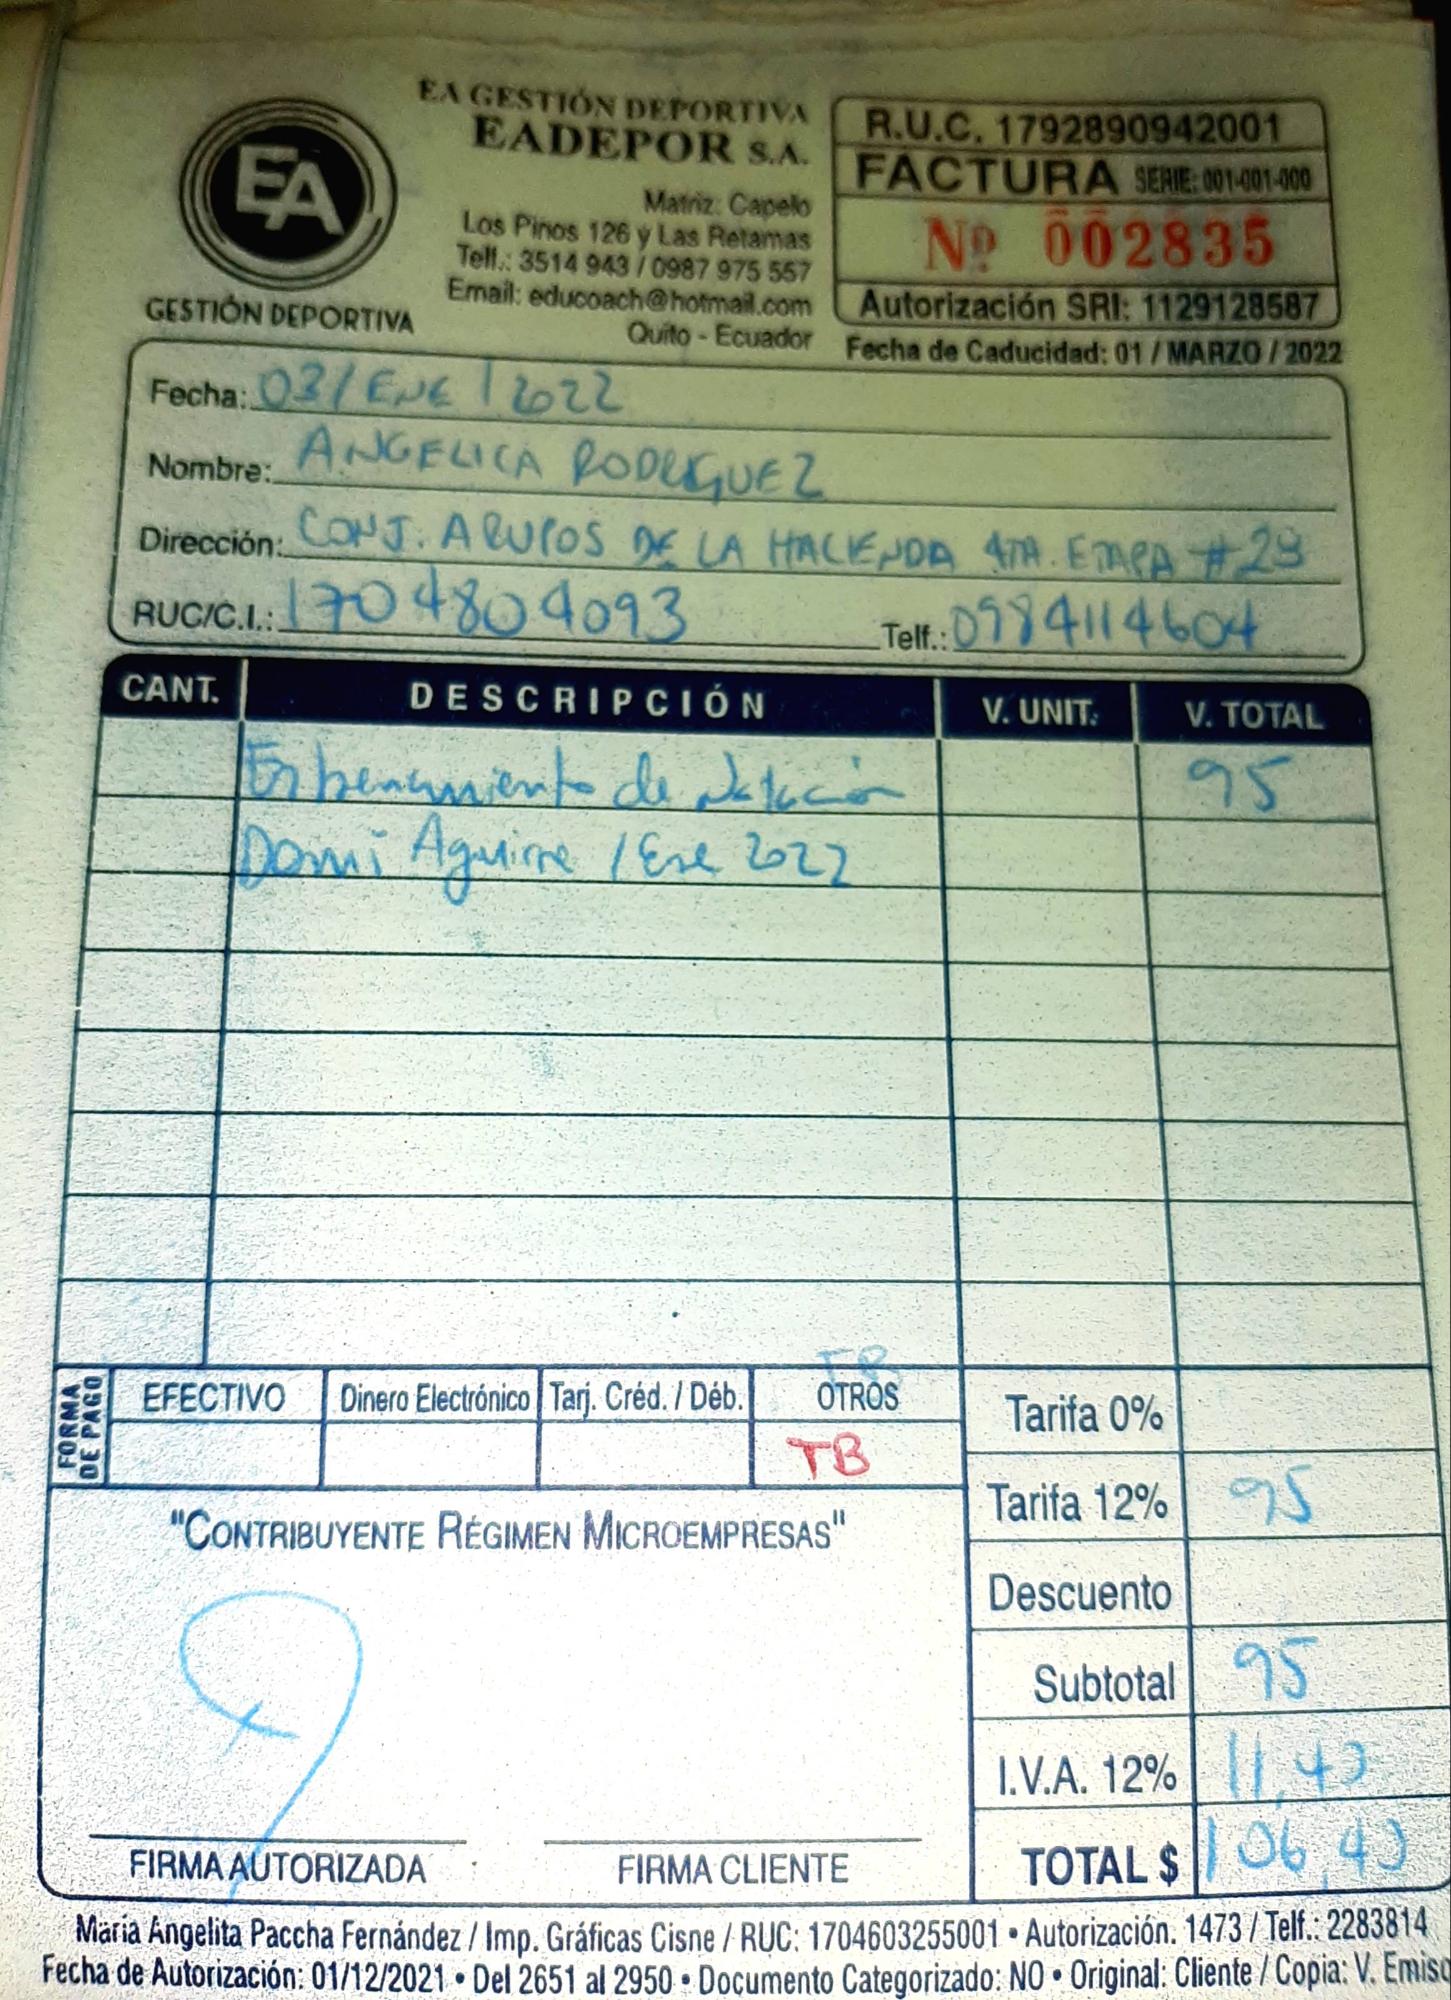 EA
GESTIÓN DEPORTIVA
EA GESTIÓN DEPORTIVA
EADEPOR S.A.
Matriz: Capelo
Los Pinos 126 y Las Retamas
Telf.: 3514 943 / 0987 975 557
Email: educoach@hotmail.com
Quito - Ecuador
R.U.C. 1792890942001
FACTURA SERIE: 001-001-000
Nº 002835
Autorización SRI: 1129128587
Fecha de Caducidad: 01 / MARZO / 2022
Fecha: 03/ENE/2022
Nombre: ANGELICA RODRIGUEZ
Dirección: CONJ. ARUPOS DE LA HACIENDA 4TA. ETAPA #29
RUC/C.I.: 1704804093 Telf.: 0984114604
CANT. DESCRIPCIÓN V. UNIT. V. TOTAL
Entrenamiento de Natación 95
Domi Aguirre / Ene 2022
TB
FORMA DE PAGO EFECTIVO Dinero Electrónico Tarj. Créd. / Déb. OTROS
TB
Tarifa 0%
Tarifa 12% 95
Descuento
Subtotal 95
I.V.A. 12% 11,40
TOTAL $ 106,40
"CONTRIBUYENTE RÉGIMEN MICROEMPRESAS"
FIRMA AUTORIZADA FIRMA CLIENTE
María Angelita Paccha Fernández / Imp. Gráficas Cisne / RUC: 1704603255001 • Autorización. 1473 / Telf.: 2283814
Fecha de Autorización: 01/12/2021 • Del 2651 al 2950 • Documento Categorizado: NO • Original: Cliente / Copia: V. Emiso